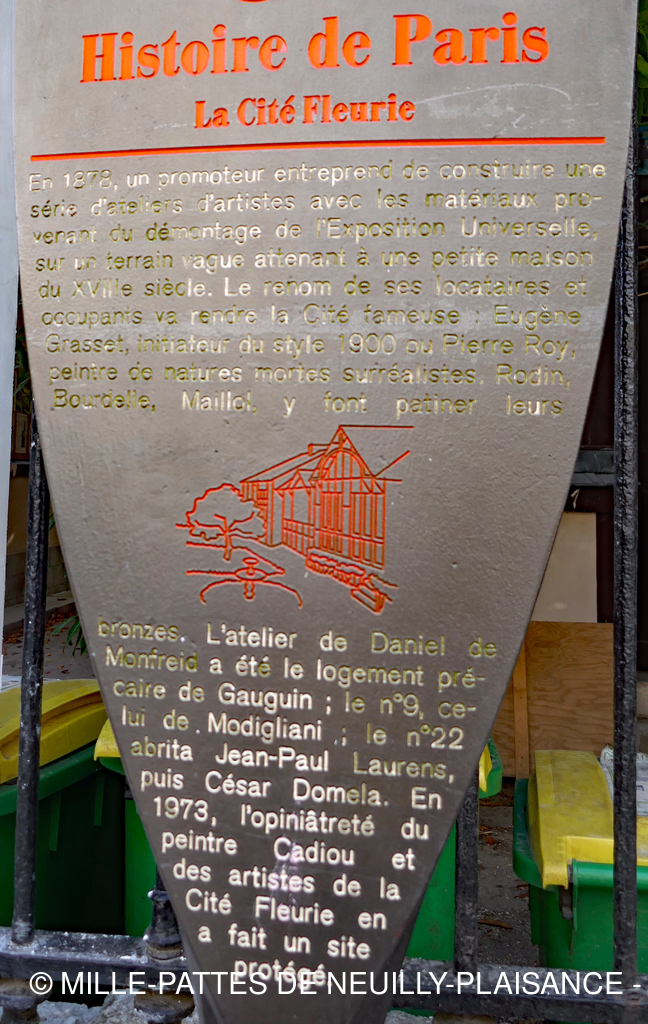 Histoire de Paris
La Cité Fleurie
En 1878, un promoteur entreprend de construire une
série d'ateliers d'artistes avec les matériaux pro-
venant du démontage de l'Exposition Universelle,
sur un terrain vague attenant à une petite maison
du XVIIIe siècle. Le renom de ses locataires et
occupants va rendre la Cité fameuse : Eugène
Grasset, initiateur du style 1900 ou Pierre Roy,
peintre de natures mortes surréalistes. Rodin,
Bourdelle, Maillol, y font patiner leurs
bronzes. L'atelier de Daniel de
Monfreid a été le logement pré-
caire de Gauguin ; le n°9, ce-
lui de Modigliani ; le n°22
abrita Jean-Paul Laurens,
puis César Domela. En
1973, l'opiniâtreté du
peintre Cadiou et
des artistes de la
Cité Fleurie en
a fait un site
protégé
© MILLE-PATTES DE NEUILLY-PLAISANCE -